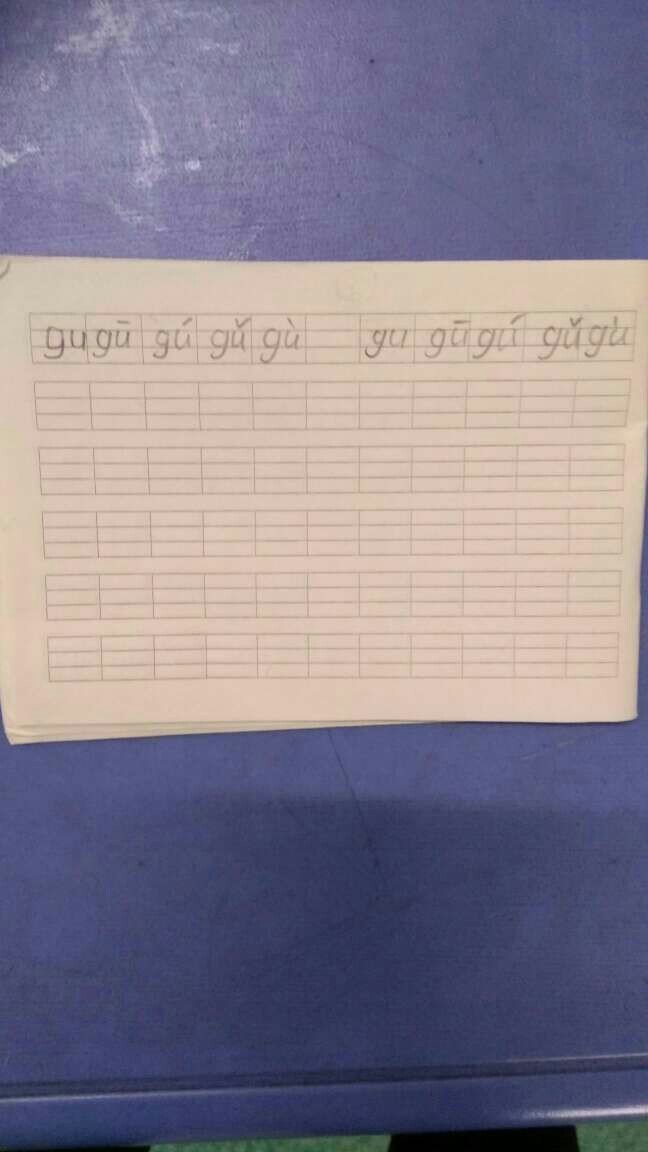 gu gū gú gǔ gù gu gū gú gǔ gù